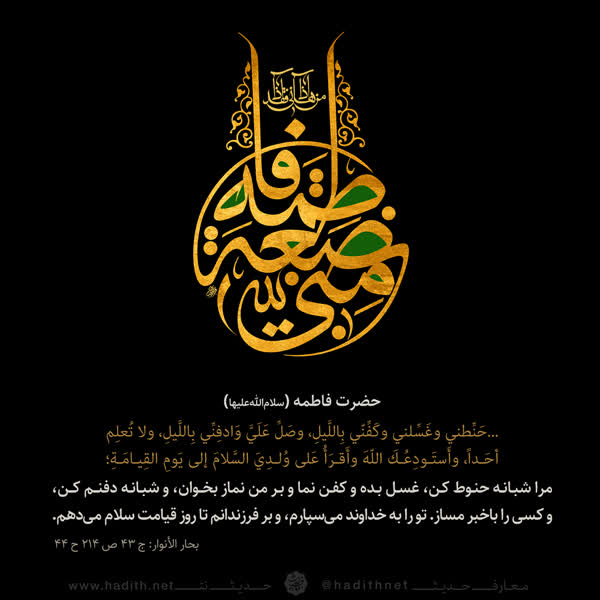 من هانی آذاها فقد آذانی
فاطمة بضعة منی
حضرت فاطمه (سلام‌الله‌علیها)
...حَنِّطني وغَسِّلني وكَفِّنّي بِاللَّيلِ، وصَلِّ عَلَيَّ وَادفِنِّي بِاللَّيلِ، ولا تُعلِم
أحَداً، وأستَودِعُكَ اللّهَ وأقرَأُ عَلى وُلدِيَ السَّلامَ إلى يَومِ القِيامَةِ؛
مرا شبانه حنوط کن، غسل بده و کفن نما و بر من نماز بخوان، و شبانه دفنم کن،
و کسی را باخبر مساز. تو را به خداوند می‌سپارم، و بر فرزندانم تا روز قیامت سلام می‌دهم.
بحار الأنوار: ج ۴۳ ص ۲۱۴ ح ۴۴
معارف حدیث @hadithnet حدیث نت www.hadith.net